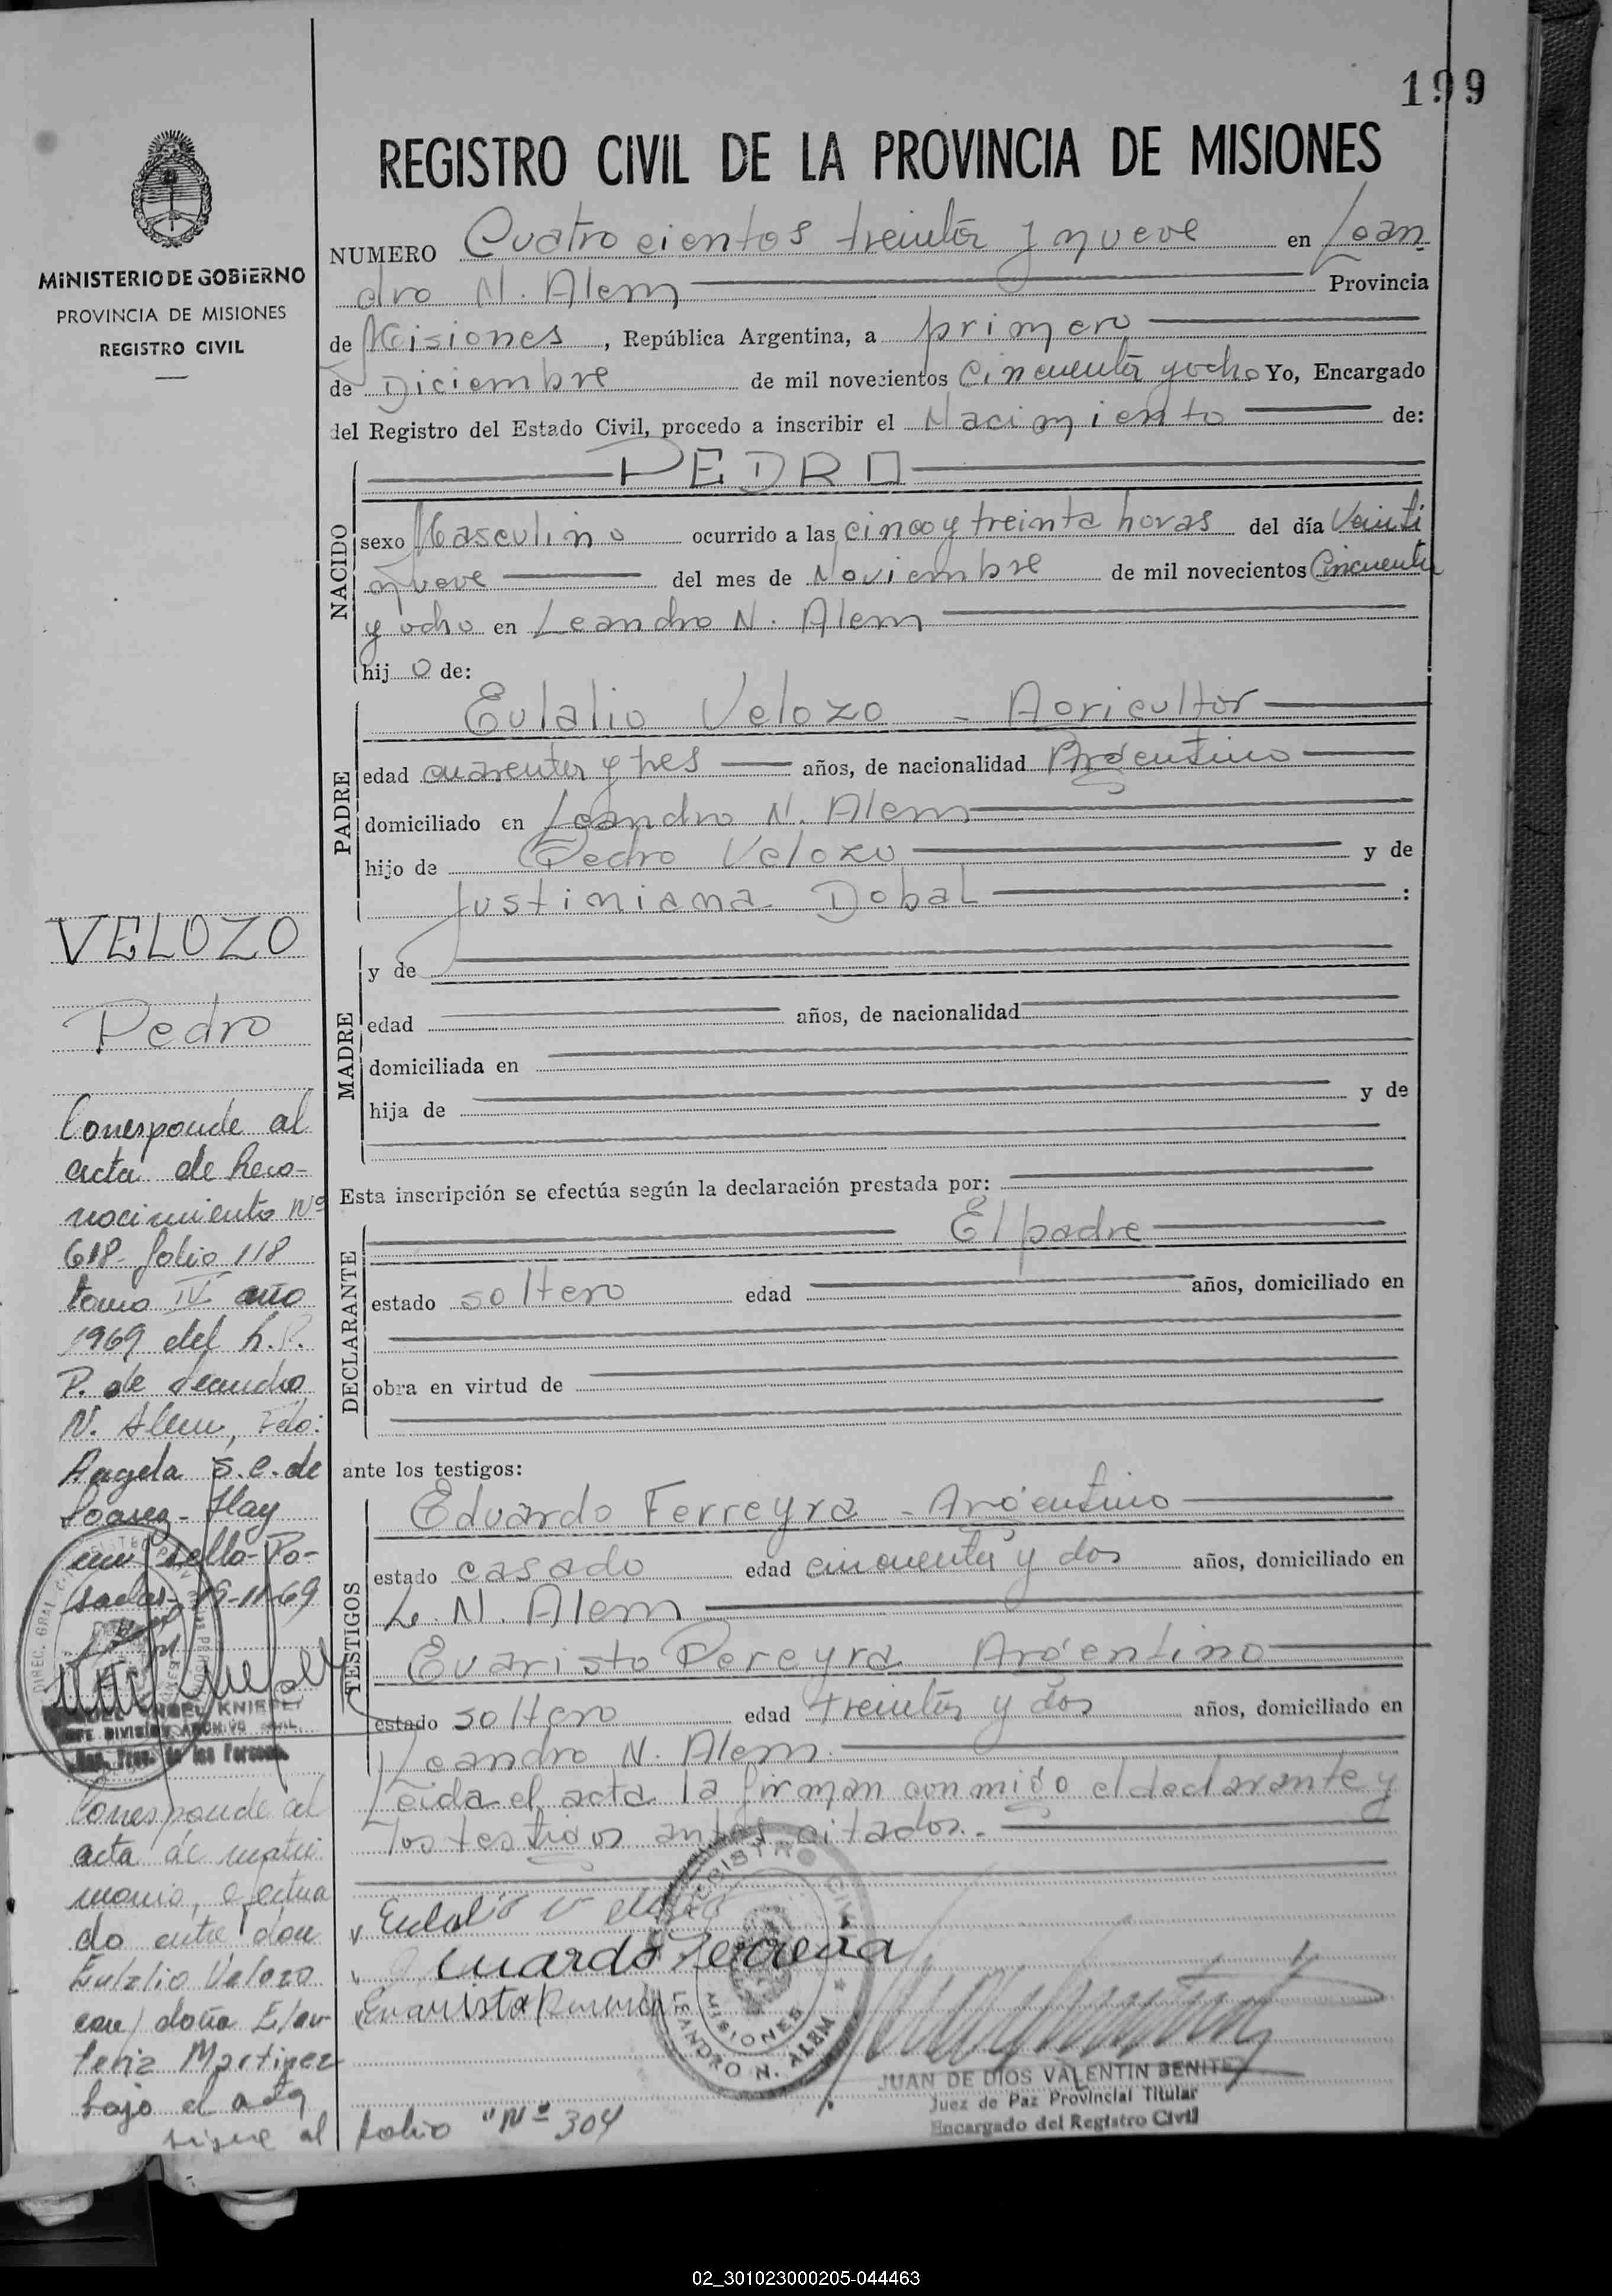 199
MINISTERIO DE GOBIERNO
PROVINCIA DE MISIONES
REGISTRO CIVIL
REGISTRO CIVIL DE LA PROVINCIA DE MISIONES
NUMERO Cuatrocientos treinta y nueve en Lean
dro N. Alem Provincia
de Misiones, República Argentina, a primero
de Diciembre de mil novecientos Cincuenta y ocho Yo, Encargado
del Registro del Estado Civil, procedo a inscribir el Nacimiento de:
NACIDO
PEDRO
sexo Masculino ocurrido a las cinco y treinta horas del día Veinti
nueve del mes de Noviembre de mil novecientos Cincuenta
y ocho en Leandro N. Alem
hij o de:
PADRE
Eulalio Velozo - Agricultor
edad cuarenta y tres años, de nacionalidad Argentino
domiciliado en Leandro N. Alem
hijo de Pedro Velozo y de
Justiniana Dobal :
MADRE
y de
edad años, de nacionalidad
domiciliada en
hija de y de
Esta inscripción se efectúa según la declaración prestada por:
DECLARANTE
El padre
estado soltero edad años, domiciliado en
obra en virtud de
ante los testigos:
TESTIGOS
Eduardo Ferreyra - Argentino
estado casado edad cincuenta y dos años, domiciliado en
L. N. Alem
Evaristo Pereyra Argentino
estado soltero edad treinta y dos años, domiciliado en
Leandro N. Alem.
Leida el acta la firman conmigo el declarante y
los testigos antes citados.-
Eulalio
REGISTRO CIVIL
MISIONES
LEANDRO N. ALEM
JUAN DE DIOS VALENTIN BENITEZ
Juez de Paz Provincial Titular
Encargado del Registro Civil
VELOZO
Pedro
Corresponde al
acta de Reco-
nocimiento Nº
618 folio 118
tomo IV año
1969 del R.P.
P. de Leandro
N. Alem, Fdo:
Angela S. C. de
Soarez - Hay
un sello - Po-
sadas 19-11-69
ANGEL KNIE
JEFE DIVISION ARCHIVO CIVIL
Reg. Prov. de las Personas
Corresponde al
acta de matri
monio, efectua
do entre don
Eulalio Velozo
con/ doña Eleu-
teria Martinez
bajo el acta
sigue al folio "Nº 304
02_301023000205-044463